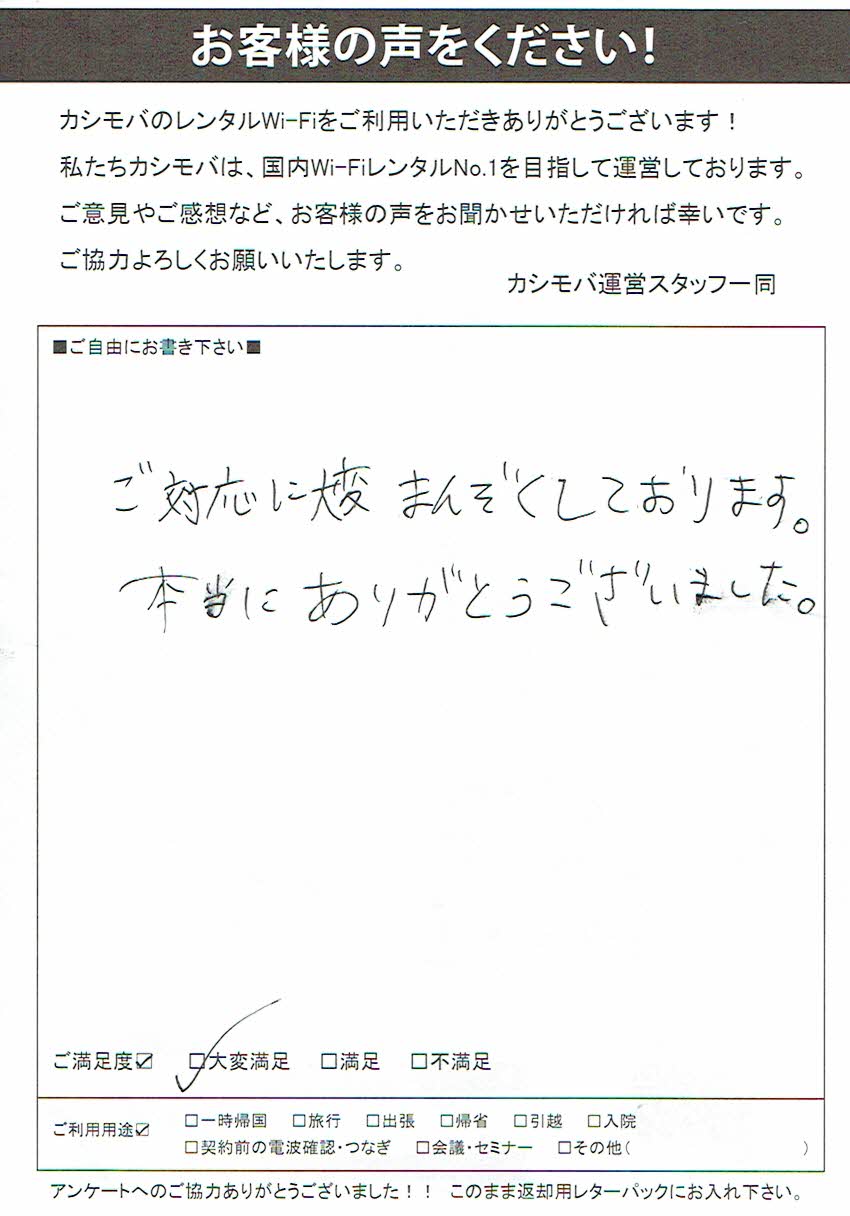 お客様の声をください!
カシモバのレンタルWi-Fiをご利用いただきありがとうございます!
私たちカシモバは、国内Wi-FiレンタルNo.1を目指して運営しております。
ご意見やご感想など、お客様の声をお聞かせいただければ幸いです。
ご協力よろしくお願いいたします。
カシモバ運営スタッフ一同
■ご自由にお書き下さい■
ご対応に大変 まんぞくしております。
本当に ありがとうございました。
ご満足度☑ □大変満足 □満足 □不満足
ご利用用途☑ □一時帰国 □旅行 □出張 □帰省 □引越 □入院
□契約前の電波確認・つなぎ □会議・セミナー □その他( )
アンケートへのご協力ありがとうございました!! このまま返却用レターパックにお入れ下さい。